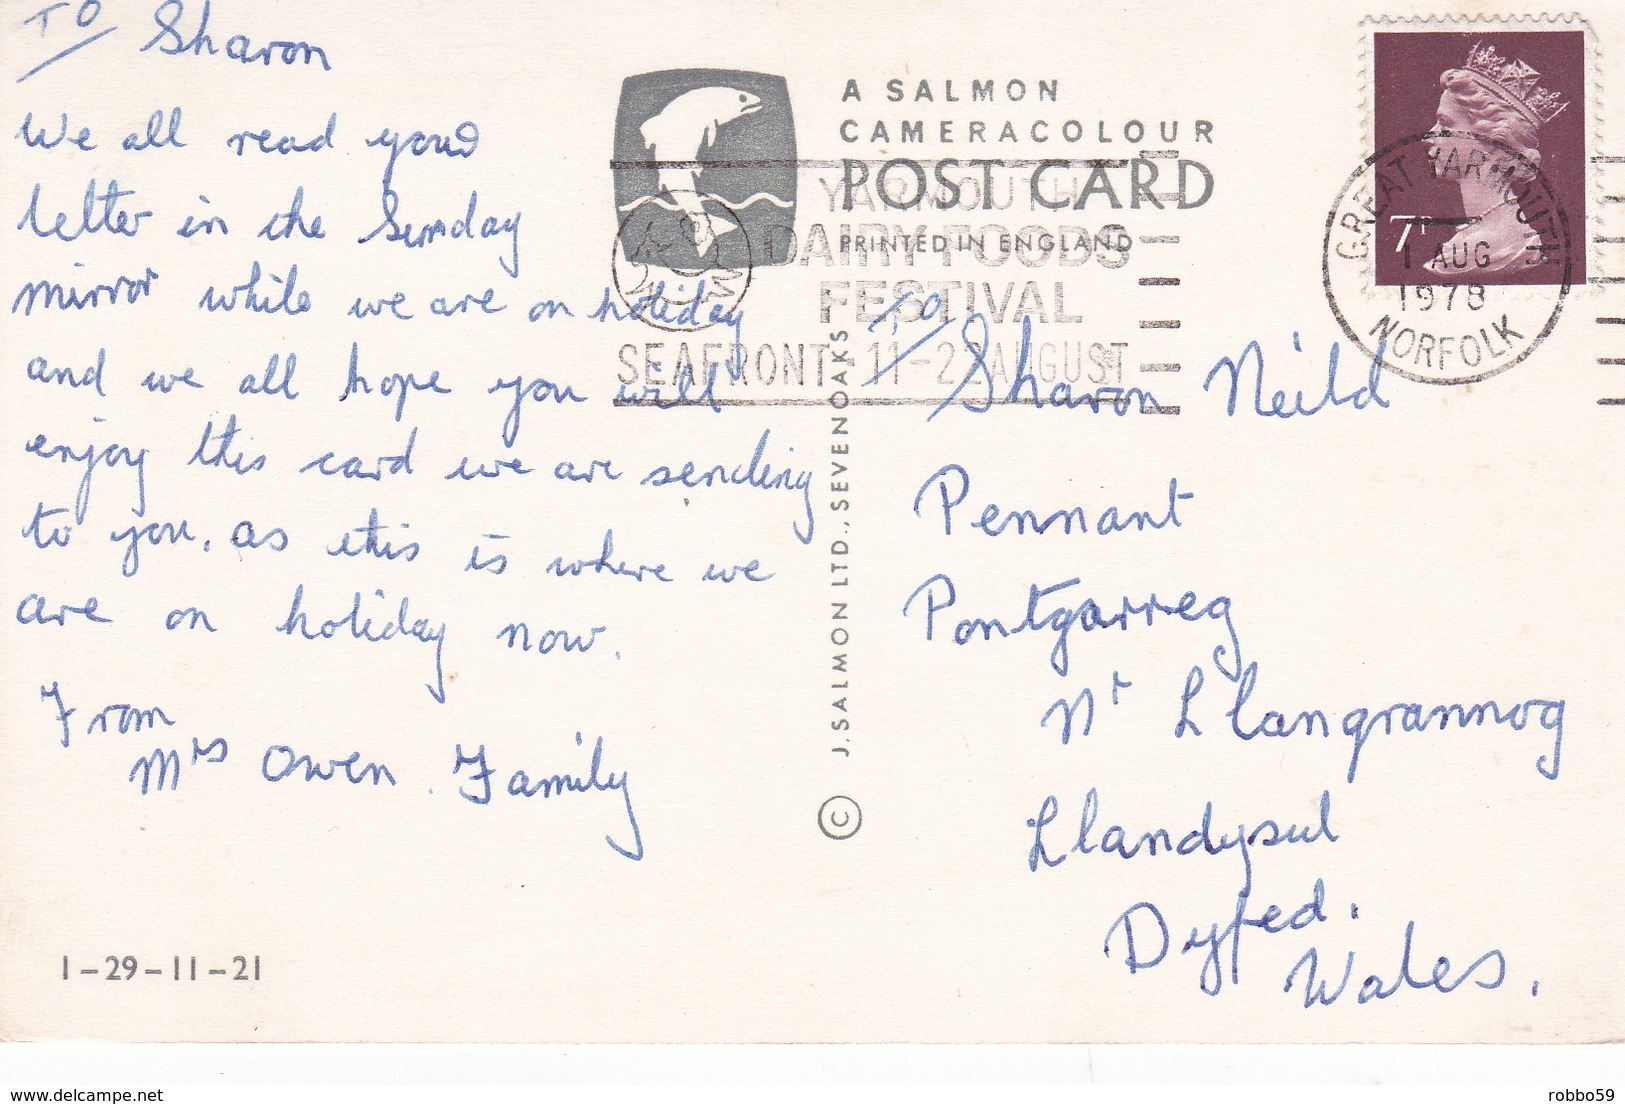 To Sharon
We all read your
letter in the Sunday
mirror while we are on holiday
and we all hope you will
enjoy this card we are sending
to you. as this is where we
are on holiday now.
From
Mrs Owen. Family
1-29-11-21
A SALMON
CAMERACOLOUR
POST CARD
PRINTED IN ENGLAND
YARMOUTH
DAIRY FOODS
FESTIVAL
SEAFRONT 11-22 AUGUST
J. SALMON LTD., SEVENOAKS
©
7P
GREAT YARMOUTH
1 AUG
1978
NORFOLK
To
Sharon Neild
Pennant
Pontgarreg
Nr Llangrannog
Llandysul
Dyfed.
Wales.
delcampe.net
robbo59